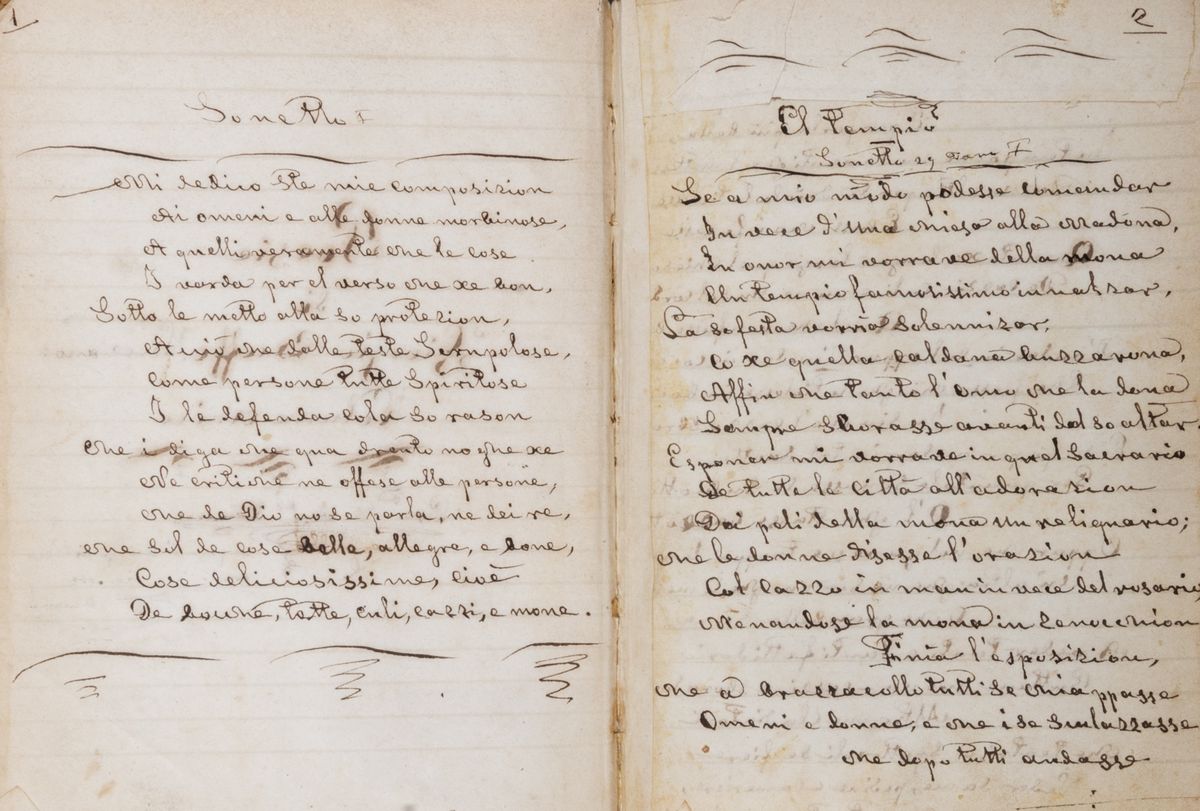 1
Sonetto
Mi dedico ste mie composizion
Ai omeni e alle donne morbinose,
A quelli veramente che le cose
I varda per el verso che xe bon,
Sotto le metto alla so protezion,
Acciò che dalle teste Scrupolose,
Come persone tutte Spiritose
I le defenda cola so rason
Che i diga che qua drento no ghe xe
Ne critiche ne offese alle persone,
Che de Dio no se parla, ne dei re,
Che Sol de cose belle, allegre, e bone,
Cose deliciosissime, cioè
De tette, culi, cazzi, e mone.
2
El tempio
Sonetto 29
Se a mio modo podesse comandar
In vece d'una chiesa alla Madona,
In onor mi vorrave della mona
Un tempio famosissimo inalzar,
La so festa vorria Solennizar,
Co xe quella caldana buzzarona,
Affin che tanto l'omo che la dona
Sempre sborasse avanti del so altar.
Esponer mi vorrave in quel Sacrario
De tutte le città all'adorazion
Dai peli della mona un reliquario;
Che le donne disesse l'orazion
Col cazzo in man in vece del rosario,
Menandose la mona in zenocchion
Finia l'esposizion,
Che a brazzacollo tutti se chiappasse
Omeni e donne, e che i se sculazzasse
Che dopo tutti andasse